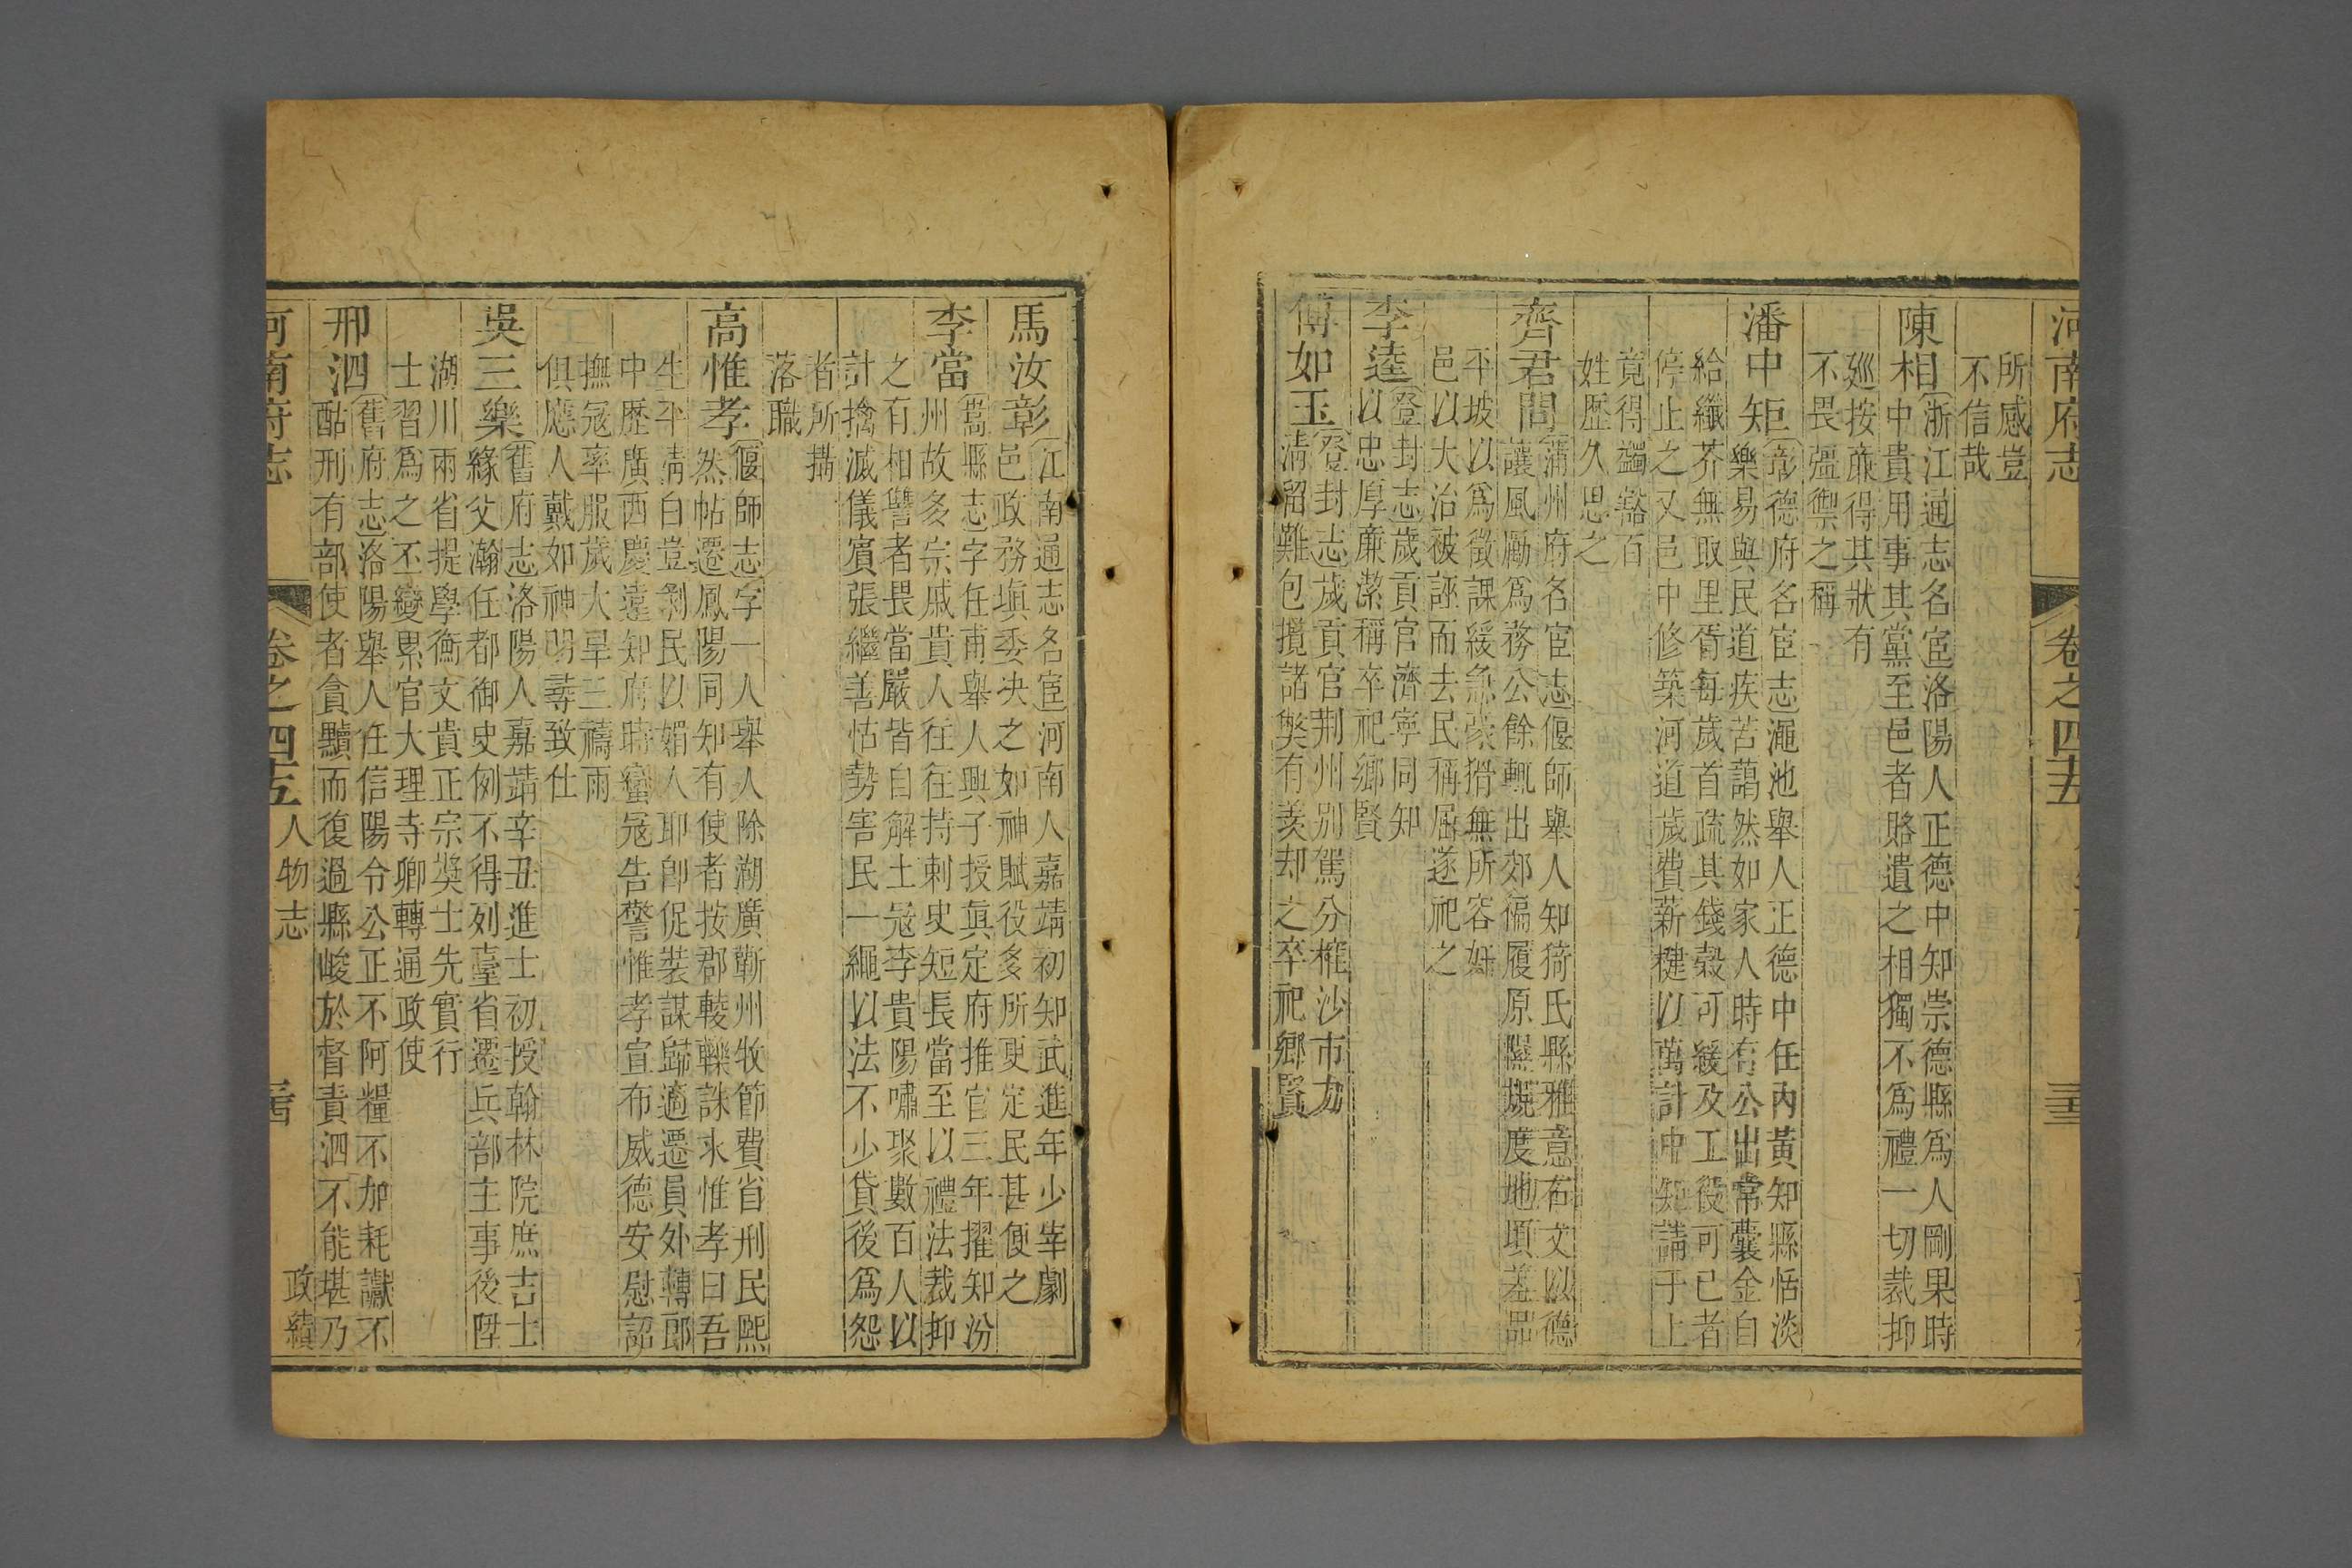 河南府志
卷之四五
三
所感豈
不信哉
陳相
浙江通志名宦洛陽人正德中知崇德縣為人剛果時
中貴用事其黨至邑者賂遺之相獨不為禮一切裁抑
廵按㢘得其狀有
不畏彊禦之稱
潘中矩
彰德府名宦志澠池舉人正德中任內黃知縣恬淡
樂易與民道疾苦藹然如家人時有公出常囊金自
給纖芥無取里胥每歲首疏其錢榖可緩及工役可已者
停止之又邑中修築河道歲費薪楗以萬計中矩請于上
竟得蠲豁百
姓歷久思之
齊君問
蒲州府名宦志偃師舉人知猗氏縣雅意右文以德
讓風勵為務公餘輒出郊徧履原隰規度地頃差品
平坡以為徵課緩急豪猾無所容姧
邑以大治被誣而去民稱屈遂祀之
李逵
登封志歲貢官濟寧同知
以忠厚㢘潔稱卒祀鄉賢
傅如玉
登封志歲貢官荆州别駕分榷沙市力
淸留難包攬諸獘有羨却之卒祀鄉賢
馬汝彰
江南通志名宦河南人嘉靖初知武進年少宰劇
邑政務塡委决之如神賦役多所更定民甚便之
李當
嵩縣志字任甫舉人興子授眞定府推官三年擢知汾
州故多宗戚貴人往往持刺史短長當至以禮法裁抑
之有相讐者畏當嚴皆自解土冦李貴陽嘯聚數百人以
計擒滅儀賓張繼善怙勢害民一繩以法不少貸後為怨
者所搆
落職
高惟孝
偃師志字一人舉人除湖廣蘄州牧節費省刑民熙
然帖遷鳳陽同知有使者按郡輘轢誅求惟孝曰吾
生平淸白豈剝民以媚人耶卽促裝謀歸適遷員外轉郎
中歷廣西慶遠知府時蠻冦告警惟孝宣布威德安慰詔
撫冦率服歲大旱三禱雨
俱應人戴如神明尋致仕
吳三樂
舊府志洛陽人嘉靖辛丑進士初授翰林院庶吉士
緣父瀚任都御史例不得列臺省遷兵部主事後陞
湖川兩省提學衡文貴正宗奬士先實行
士習為之丕變累官大理寺卿轉通政使
邢泗
舊府志洛陽舉人任信陽令公正不阿糧不加耗讞不
酷刑有部使者貪黷而復過縣峻於督責泗不能堪乃
河南府志
卷之四五
人物志
政績